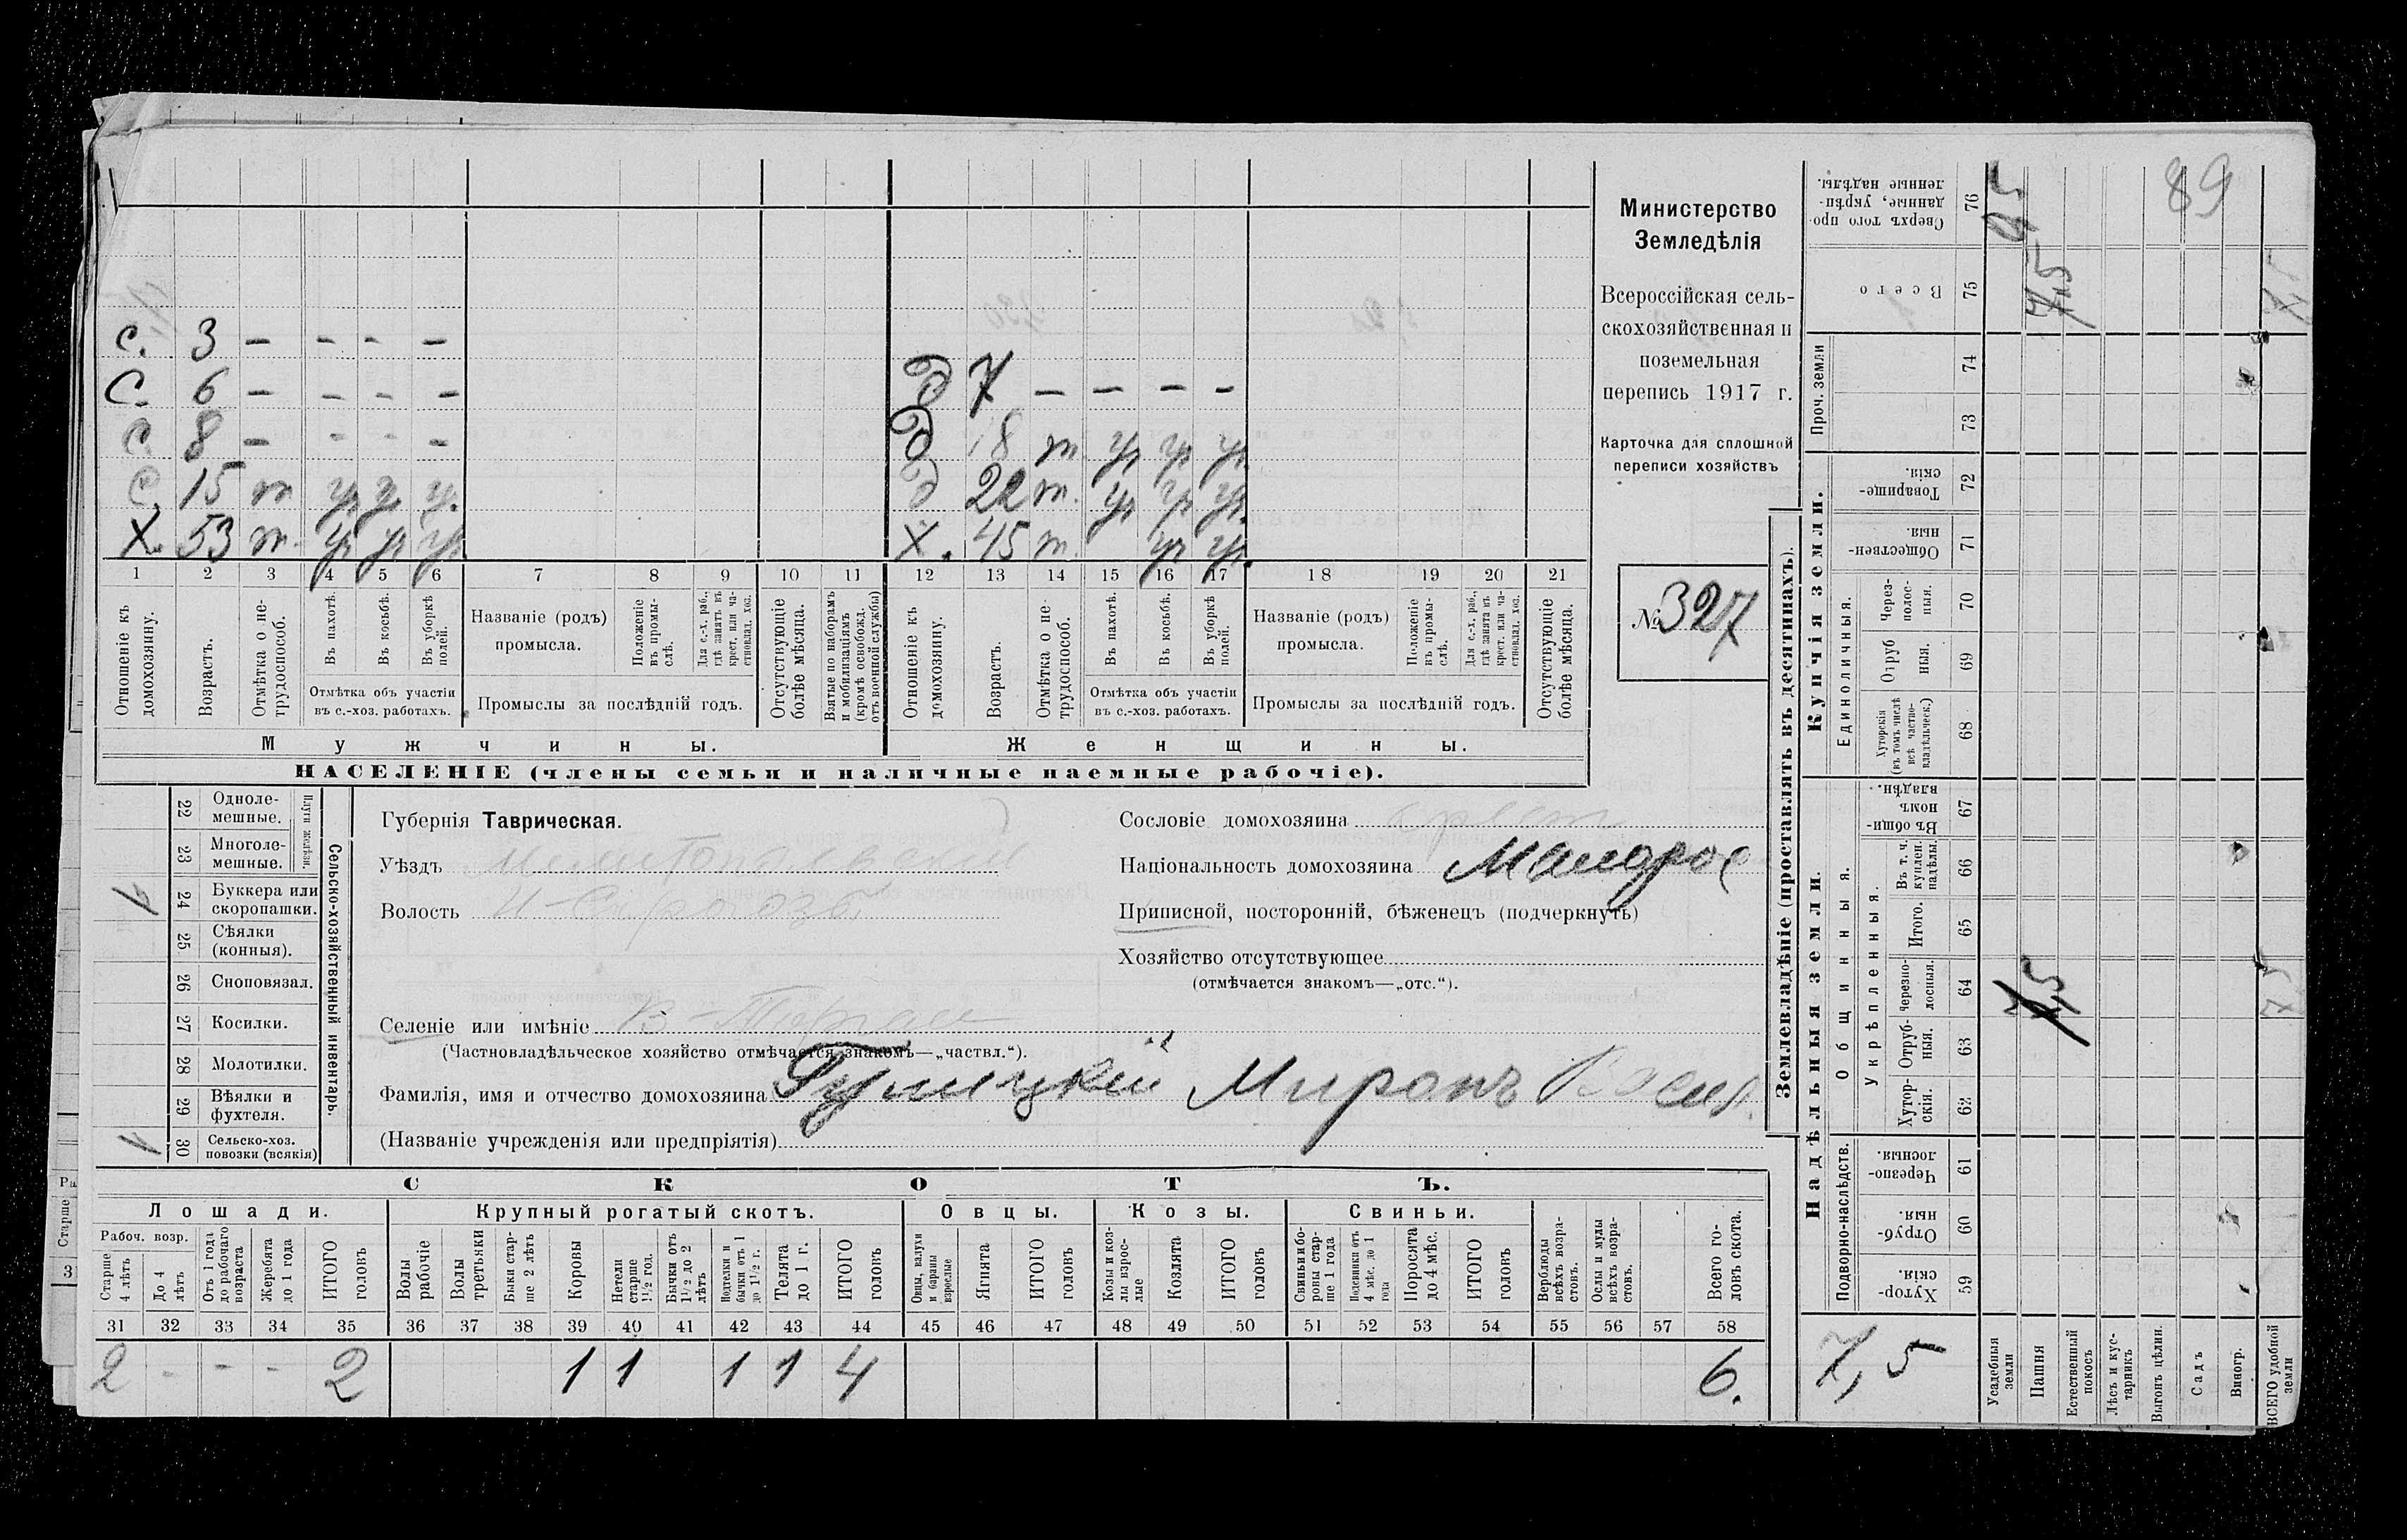 89
Министерство
Земледѣлія
Всероссійская сель-
скохозяйственная и
поземельная
перепись 1917 г.
Карточка для сплошной
переписи хозяйствъ
№ 327
с. 3 — — — —
с. 6 — — — —
с. 8 — — — —
с. 15 т ур у. у.
х. 53 т. ур ур ур
д 7 — — — —
д 18 т ур ур ур.
д 22 т. ур ур ур.
х. 45 т. ур ур.
1 2 3 4 5 6 7 8 9 10 11 12 13 14 15 16 17 18 19 20 21
Отношеніе къ домохозяину.
Возрастъ.
Отмѣтка о не-трудоспособ.
Въ пахотѣ.
Въ косьбѣ.
Въ уборкѣ полей.
Отмѣтка объ участіи
въ с.-хоз. работахъ.
Названіе (родъ)
промысла.
Положеніе въ промы-слѣ.
Для с.-х. раб., гдѣ занятъ въ крест. или ча-стновлад. хоз.
Промыслы за послѣдній годъ.
Отсутствующіе болѣе мѣсяца.
Взятые по наборамъ и мобилизаціямъ (кромѣ освобожд. отъ военной службы)
Отношеніе къ домохозяину.
Возрастъ.
Отмѣтка о не-трудоспособ.
Въ пахотѣ.
Въ косьбѣ.
Въ уборкѣ полей.
Отмѣтка объ участіи
въ с.-хоз. работахъ.
Названіе (родъ)
промысла.
Положеніе въ промы-слѣ.
Для с.-х. раб., гдѣ занята въ крест. или ча-стновлад. хоз.
Промыслы за послѣдній годъ.
Отсутствующіе болѣе мѣсяца.
Мужчины.
Женщины.
НАСЕЛЕНІЕ (члены семьи и наличные наемные рабочіе).
Сельско-хозяйственный инвентарь.
Плуги желѣзн.
22 Одноле-мешные.
23 Многоле-мешные.
1 24 Буккера или скоропашки.
25 Сѣялки (конныя).
26 Сноповязал.
27 Косилки.
28 Молотилки.
29 Вѣялки и фухтеля.
1 30 Сельско-хоз. повозки (всякія)
Губернія Таврическая.
Уѣздъ Мелитопольскій
Волость Н-Сѣрогозы
Селеніе или имѣніе
(Частновладѣльческое хозяйство отмѣчается знакомъ—„частвл.“).
Фамилія, имя и отчество домохозяина Миронъ Васил.
(Названіе учрежденія или предпріятія)
Сословіе домохозяина крест
Національность домохозяина Малорос
Приписной, посторонній, бѣженецъ (подчеркнуть)
Хозяйство отсутствующее
(отмѣчается знакомъ—„отс.“).
СКОТЪ.
Лошади.
Крупный рогатый скотъ.
Овцы.
Козы.
Свиньи.
Рабоч. возр.
Старше 4 лѣтъ
До 4 лѣтъ
Отъ 1 года до рабочаго возраста
Жеребята до 1 года
ИТОГО головъ
Волы рабочіе
Волы третьяки
Быки стар-ше 2 лѣтъ
Коровы
Нетели старше 1½ год.
Бычки отъ 1½ до 2 лѣтъ
Подтелки и бычки отъ 1 до 1½ г.
Телята до 1 г.
ИТОГО головъ
Овцы, валухи и бараны взрослые
Ягнята
ИТОГО головъ
Козы и коз-лы взрос-лые
Козлята
ИТОГО головъ
Свиньи и бо-ровы стар-ше 1 года
Подсвинки отъ 4 мѣс. до 1 года
Поросята до 4 мѣс.
ИТОГО головъ
Верблюды всѣхъ возра-стовъ.
Ослы и мулы всѣхъ возра-стовъ.
Всего го-ловъ скота.
31 32 33 34 35 36 37 38 39 40 41 42 43 44 45 46 47 48 49 50 51 52 53 54 55 56 57 58
2 - - - 2 1 1 1 1 4 6.
Землевладѣніе (проставлять въ десятинахъ).
Надѣльныя земли.
Купчія земли.
Проч. земли
Подворно-наслѣдств.
Общинныя.
Укрѣпленныя.
Единоличныя.
Хутор-скія. 59
Отруб-ныя. 60
Черезпо-лосныя. 61
Хутор-скія. 62
Отруб-ныя. 63
Черезпо-лосныя. 64
Итого. 65
Въ т. ч. куплен. надѣлы. 66
Въ общи-номъ владѣн. 67
Хуторскія (въ томъ числѣ всѣ частно-владѣльческ.) 68
Отруб ныя. 69
Через-полос-ныя. 70
Обществен-ныя. 71
Товарище-скія. 72
73
74
Всего 75
Сверхъ того про-данные, укрѣп-ленные надѣлы. 76
7,5
Усадебныя земли
Пашня 7,5 7,5
Естественный покосъ
Лѣсъ и кус-тарникъ
Выгонъ цѣлин.
Садъ
Виногр.
ВСЕГО удобной земли